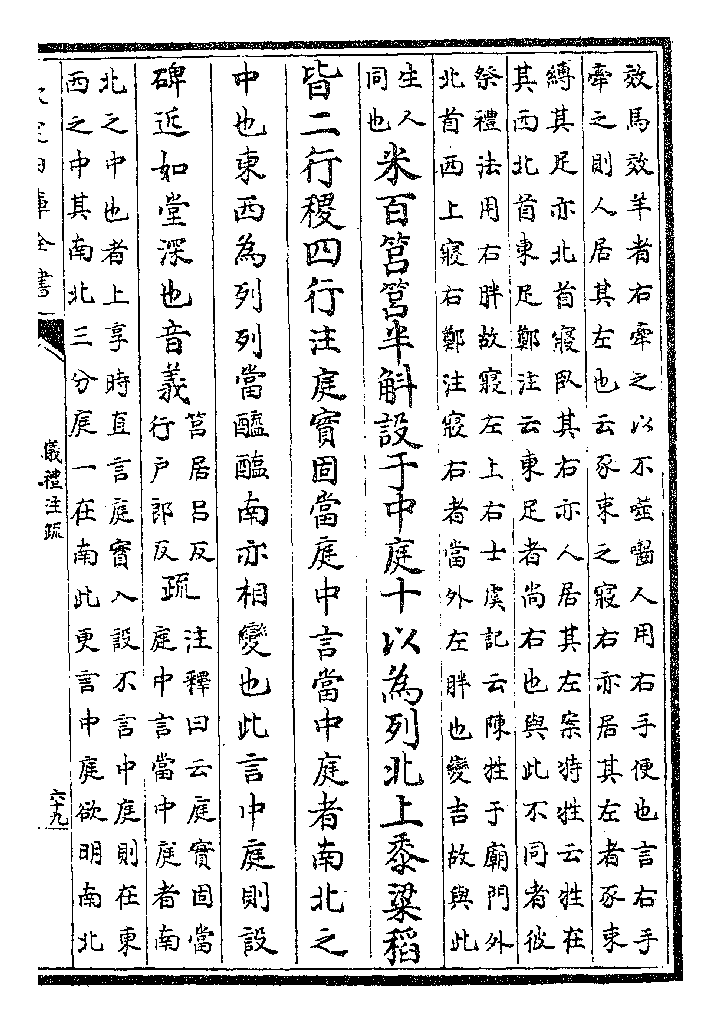 效馬效羊者右牽之以不噬齧人用右手便也言右手
牽之則人居其左也云豕束之寢右亦居其左者豕束
縛其足亦北首寢臥其右亦人居其左案特牲云牲在
其西北首東足鄭注云東足者尚右也與此不同者彼
祭禮法用右胖故寢左上右士虞記云陳牲于廟門外
北首西上寢右鄭注寢右者當外左胖也變吉故與此
生人
同也
米百筥筥半斛設于中庭十以為列北上黍粱稻
皆二行稷四行注庭實固當庭中言當中庭者南北之
中也東西為列列當醯醢南亦相變也此言中庭則設
碑近如堂深也音義
筥居吕反
行户郎反
疏
注釋曰云庭實固當
庭中言當中庭者南
北之中也者上享時直言庭實入設不言中庭則在東
西之中其南北三分庭一在南此更言中庭欲明南北
欽定四庫全書
儀禮注疏
六十九